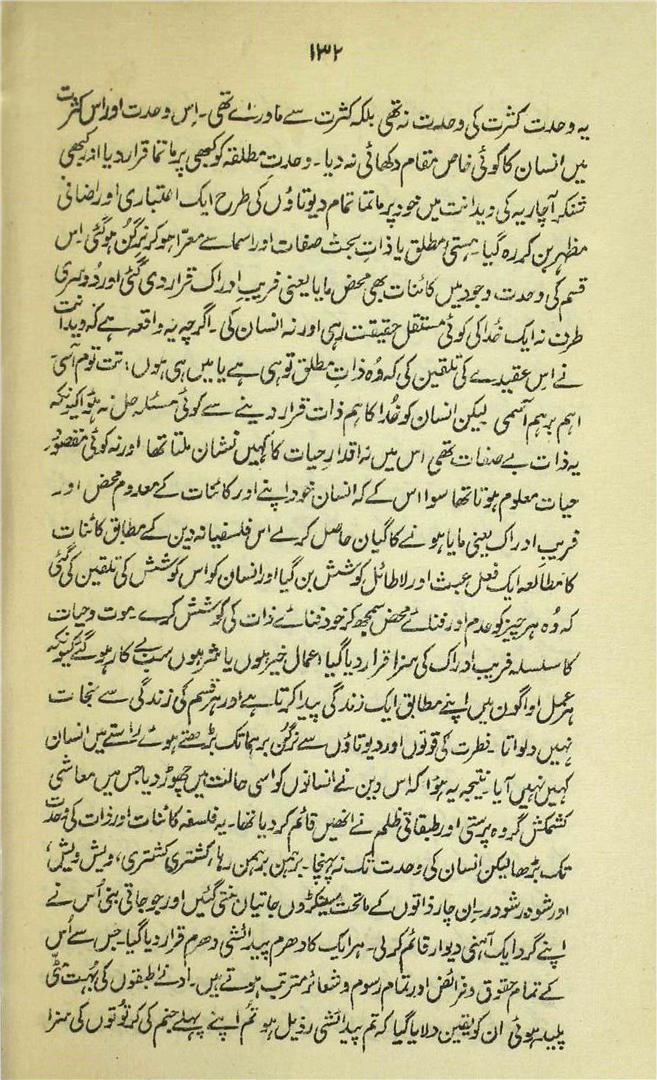 ۱۳۲
یہ وحدت کثرت کی وحدت نہ تھی بلکہ کثرت سے ماورائے تھی۔ اس وحدت اور اس کثرت
میں انسان کا کوئی خاص مقام دکھائی نہ دیا۔ وحدتِ مطلقہ کو کبھی پرماتما قرار دیا اور کبھی
شنکر آچاریہ کی ویدانت میں خود پرماتما تمام دیوتاؤں کی طرح ایک اعتباری اور اضافی
مظہر بن کر رہ گیا۔ ہستیٔ مطلق یا ذاتِ بحت صفات اور اسما سے معرّا ہو کر نرگن ہو گئی اس
قسم کی وحدت وجود میں کائنات بھی محض مایا یعنی فریبِ ادراک قرار دی گئی اور دوسری
طرف نہ ایک خدا کی کوئی مستقل حقیقت رہی اور نہ انسان کی۔ اگرچہ یہ واقعہ ہے کہ ویدانت
نے اس عقیدے کی تلقین کی کہ وہ ذاتِ مطلق تو ہی ہے یا میں ہی ہوں: تت توم آسی
اہم برہم آسمی لیکن انسان کو خدا کا ہم ذات قرار دینے سے کوئی مسئلہ حل نہ ہؤا کیونکہ
یہ ذات بے صفات تھی اس میں نہ اقدارِ حیات کا کہیں نشان ملتا تھا اور نہ کوئی مقصودِ
حیات معلوم ہوتا تھا سوا اس کے کہ انسان خود اپنے اور کائنات کے معدوم محض اور
فریبِ ادراک یعنی مایا ہونے کا گیان حاصل کرے اس فلسفیانہ دین کے مطابق کائنات
کا مطالعہ ایک فعل عبث اور لاطائل کوشش بن گیا اور انسان کو اس کوشش کی تلقین کی گئی
کہ وہ ہر چیز کو عدم اور فنائے محض سمجھ کر خود فنائے ذات کی کوشش کرے۔ موت و حیات
کا سلسلہ فریبِ ادراک کی سزا قرار دیا گیا، اعمال خیر ہوں یا شر ہوں سب بے کار ہو گئے کیونکہ
ہر عمل اواگون میں اپنے مطابق ایک زندگی پیدا کرتا ہے اور ہر قسم کی زندگی سے نجات
نہیں دلواتا۔ فطرت کی قوتوں اور دیوتاؤں سے نرگن برہما تک بڑھتے ہوئے راستے میں انسان
کہیں نہیں آیا۔ نتیجہ یہ ہؤا کہ اس دین نے انسانوں کو اسی حالت میں چھوڑ دیا جس میں معاشی
کشمکش گروہ پرستی اور طبقاتی ظلم نے انھیں قائم کر دیا تھا۔ یہ فلسفہ کائنات اور ذات کی وحدت
تک بڑھا لیکن انسان کی وحدت تک نہ پہنچا۔ برہمن برہمن رہا، کشتری کشتری، ویش ویش،
اور شودر شودر۔ ان چار ذاتوں کے ماتحت سینکڑوں جاتیاں بنتی گئیں اور جو جاتی بنی اُس نے
اپنے گرد ایک آہنی دیوار قائم کر لی۔ ہر ایک کا دھرم پیدائشی دھرم قرار دیا گیا۔ جس سے اُس
کے تمام حقوق و فرائض اور تمام رسوم و شعائر مترتب ہوتے ہیں۔ ادنےٰ طبقوں کی بُہت مٹی
پلید ہوئی ان کو یقین دلایا گیا کہ تم پیدائشی رذیل ہو تم اپنے پہلے جنم کی کرتوتوں کی سزا